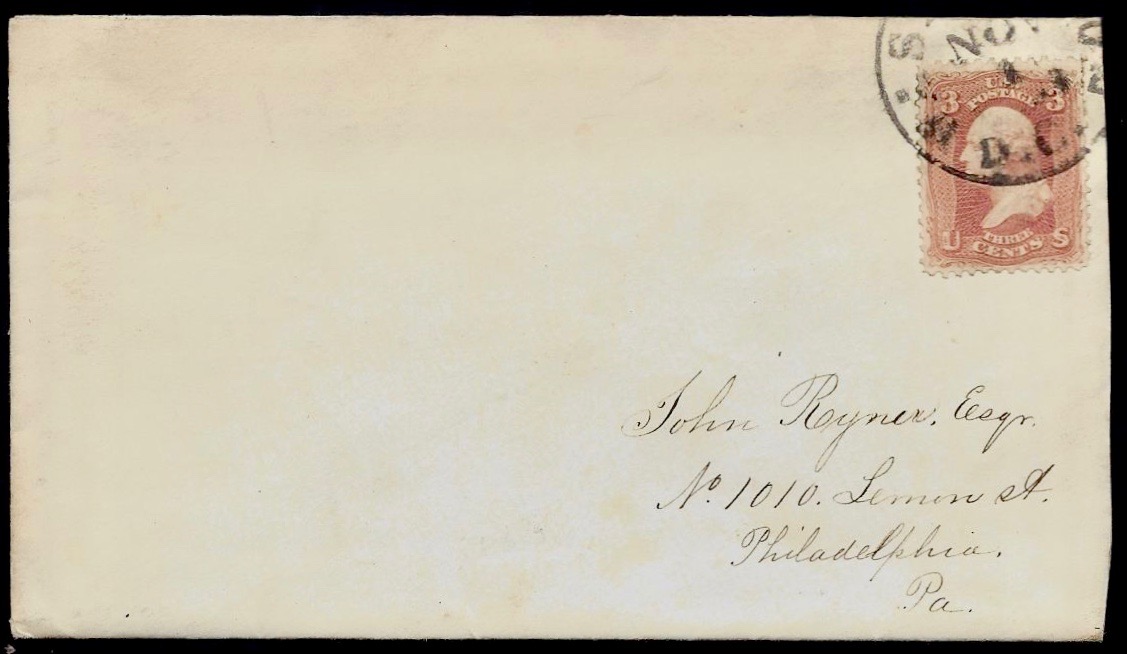 NOV
D.C.
3 U.S. 3
POSTAGE
THREE
U CENTS S
John Ryner, Esqr.
No. 1010. Lemon st.
Philadelphia.
Pa.